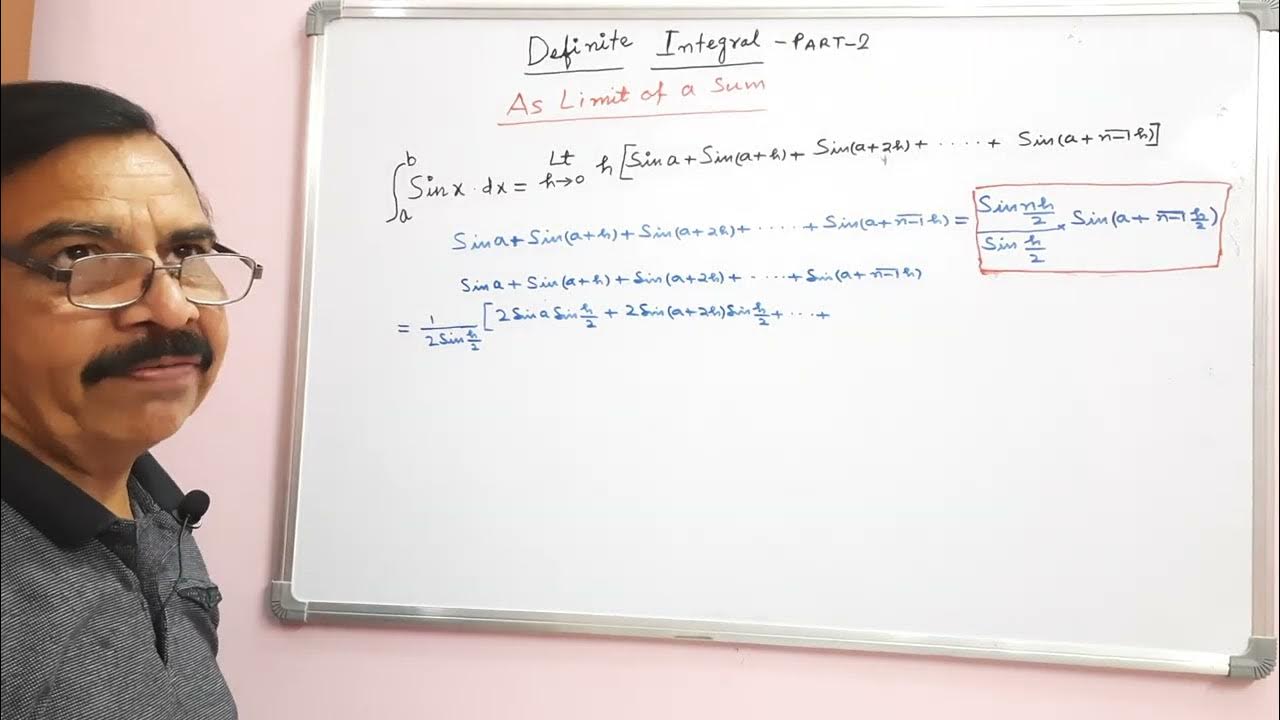 Definite Integral - PART-2
As Limit of a Sum
∫ₐᵇ Sin x · dx = Lt h→0 h [Sin a + Sin(a+h) + Sin(a+2h) + ..... + Sin(a + n̅-̅1̅ h)]
Sin a + Sin(a+h) + Sin(a+2h) + ..... + Sin(a + n̅-̅1̅ h) = Sin nh/2 / Sin h/2 × Sin(a + n̅-̅1̅ h/2)
Sin a + Sin(a+h) + Sin(a+2h) + ..... + Sin(a + n̅-̅1̅ h)
= 1/(2 Sin h/2) [2 Sin a Sin h/2 + 2 Sin(a+2h) Sin h/2 + ... +